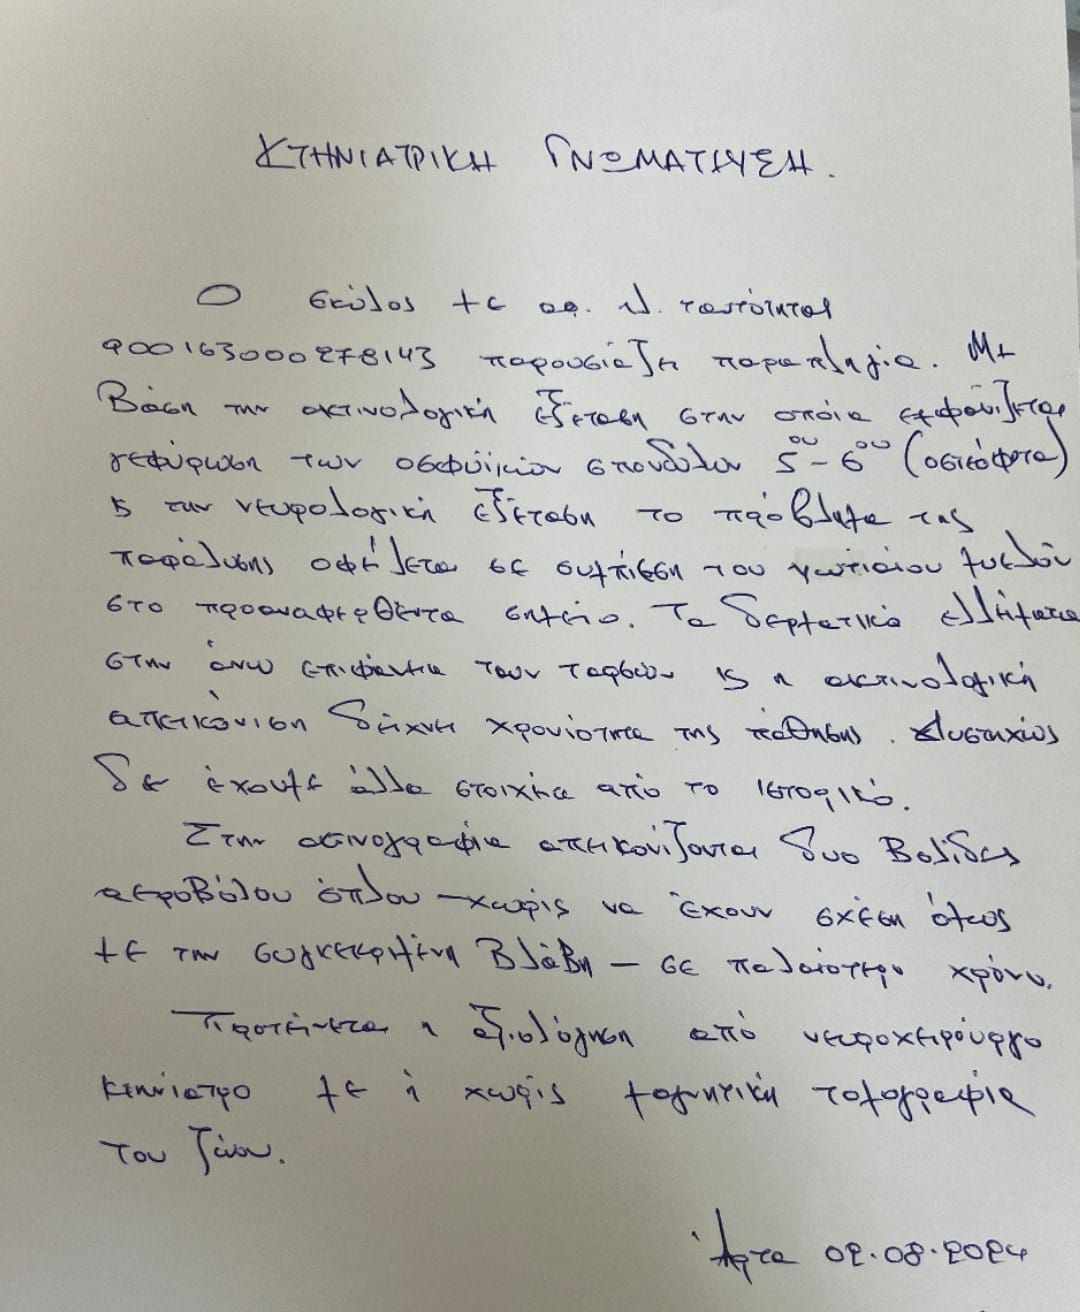 ΚΤΗΝΙΑΤΡΙΚΗ ΓΝΩΜΑΤΕΥΣΗ.
Ο σκύλος με αρ. ταυτότητας
900163000278143 παρουσιάζει παραπληγία. Με
βάση την ακτινολογική εξέταση στην οποία εμφανίζεται
γεφύρωση των οσφυϊκών σπονδύλων 5ου - 6ου (οστεόφυτα)
& την νευρολογική εξέταση το πρόβλημα της
παράλυσης οφείλεται σε συμπίεση του νωτιαίου μυελού
στο προαναφερθέντα σημείο. Τα δερματικά ελλείματα
στην άνω επιφάνεια των ταρσών & η ακτινολογική
απεικόνιση δείχνει χρονιότητα της πάθησης. Δυστυχώς
δε έχουμε άλλα στοιχεία από το ιστορικό.
Στην ακτινογραφία απεικονίζονται δυο βολίδες
αεροβόλου όπλου - χωρίς να έχουν σχέση όμως
με την συγκεκριμένη βλάβη - σε παλαιότερο χρόνο.
Προτείνεται η αξιολόγηση από νευροχειρούργο
κτηνίατρο με ή χωρίς μαγνητική τομογραφία
του ζώου.
Άρτα 02.08.2024